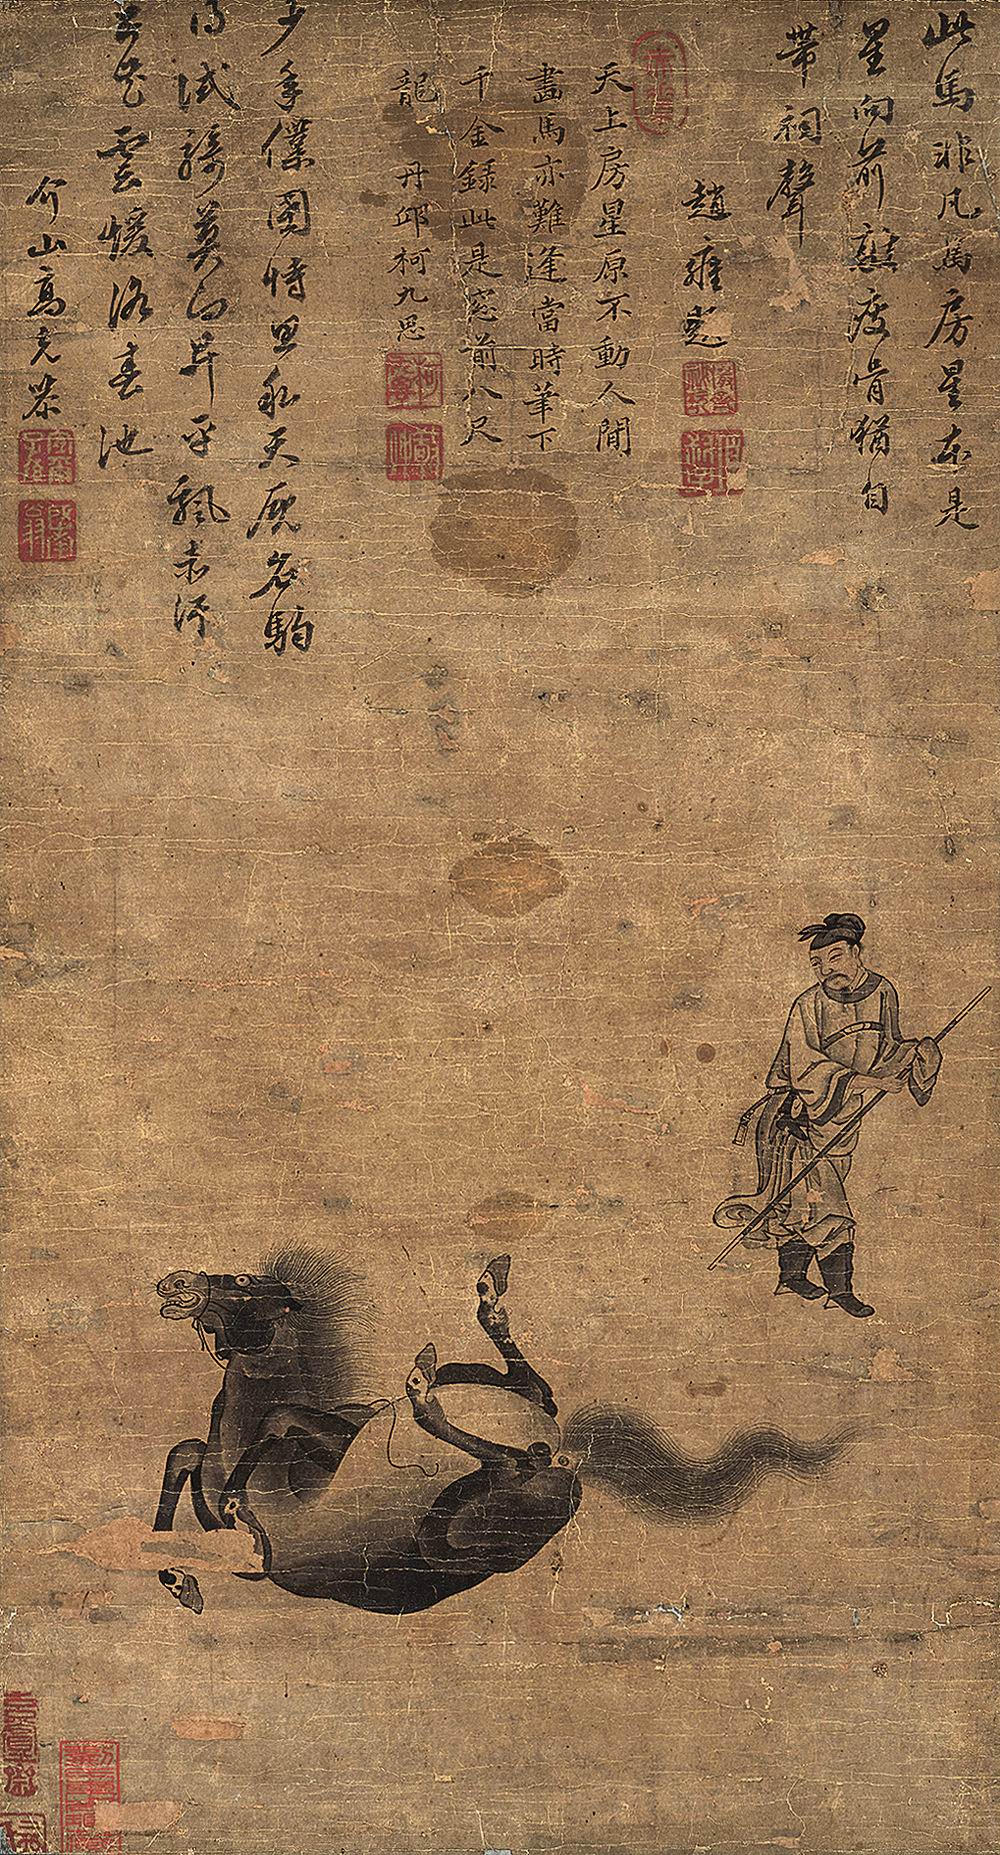 此馬非凡馬房星本是
星向前敲瘦骨猶自
帶銅聲
趙雍書
天上房星原不動人間
畫馬亦難逢當時筆下
千金錄此是窓前八尺
龍 丹邱柯九思
少年僕圉恃恩私天廐名駒
得試騎莫向昇平飄赤汗
五花雲煖浴春池
介山高克恭